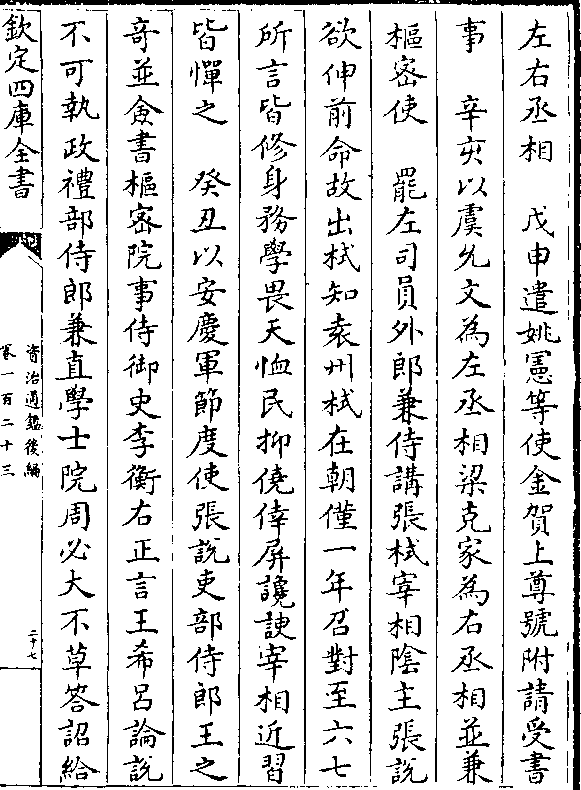 左右丞相　戊申遣姚憲等使金賀上尊號附請受書
事　辛亥以虞允文為左丞相梁克家為右丞相並兼
樞密使　罷左司員外郎兼侍講張栻宰相陰主張說
欲伸前命故出栻知袁州栻在朝僅一年召對至六七
所言皆修身務學畏天恤民抑僥倖屏讒諛宰相近習
皆憚之　癸丑以安慶軍節度使張說吏部侍郎王之
奇並僉書樞密院事侍御史李衡右正言王希呂論說
不可執政禮部侍郎兼直學士院周必大不草答詔給
欽定四庫全書
資治通鑑後編
卷一百二十三
二十七